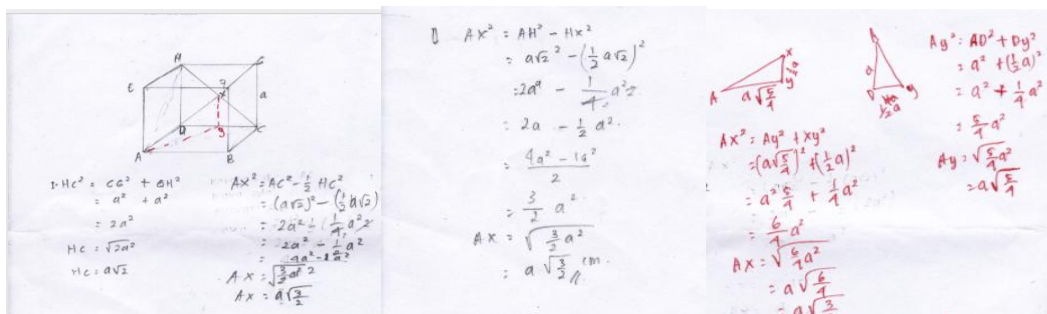 H
G
E
F
X
a
D
y
C
A
B
1. HC² = CG² + GH²
= a² + a²
= 2a²
HC = √2a²
HC = a√2
AX² = AC² - ½ HC²
= (a√2)² - (½ a√2)
= 2a² - (¼ a² 2
= 2a² - ½ a²
= 4a² - 1a² / 2
AX = √3/2 a²
AX = a√3/2
1) AX² = AH² - HX²
= a√2² - (½ a√2)²
= 2a² - ¼ a² 2
= 2a - ½ a²
= 4a² - 1a² / 2
= 3/2 a²
AX = √3/2 a²
= a √3/2 cm
X
½a
A
a√5/4
y
A
a
D
½a
y
Ay² = AD² + Dy²
= a² + (½a)²
= a² + ¼ a²
= 5/4 a²
Ay = √5/4 a²
= a√5/4
AX² = Ay² + Xy²
= (a√5/4)² + (½a)²
= a² 5/4 + ¼ a²
= 6/4 a²
AX = √6/4 a²
= a √6/4
= a√3